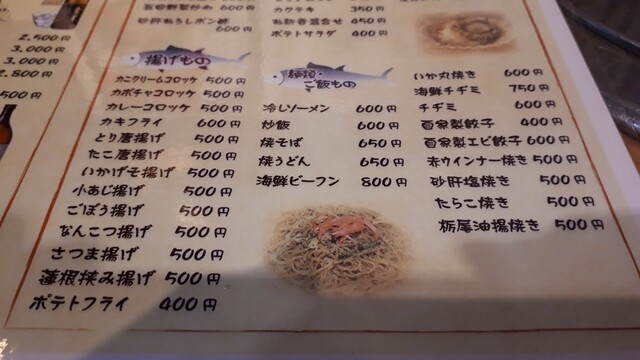 2,500円
3,000円
3,000円
2,800円
500円
600円
砂肝おろしポン酢
600円
揚げもの
カニクリームコロッケ 500円
カボチャコロッケ 500円
カレーコロッケ 500円
カキフライ 600円
とり唐揚げ 500円
たこ唐揚げ 500円
いかげそ揚げ 500円
小あじ揚げ 500円
ごぼう揚げ 500円
なんこつ揚げ 500円
さつま揚げ 500円
蓮根挟み揚げ 500円
ポテトフライ 400円
カクテキ 350円
お新香盛合せ 450円
ポテトサラダ 400円
麺類・
ご飯もの
冷しソーメン 600円
炒飯 600円
焼そば 650円
焼うどん 650円
海鮮ビーフン 800円
いか丸焼き 600円
海鮮チヂミ 750円
チヂミ 600円
自家製餃子 400円
自家製エビ餃子 600円
赤ウインナー焼き 500円
砂肝塩焼き 500円
たらこ焼き 500円
栃尾油揚焼き 500円